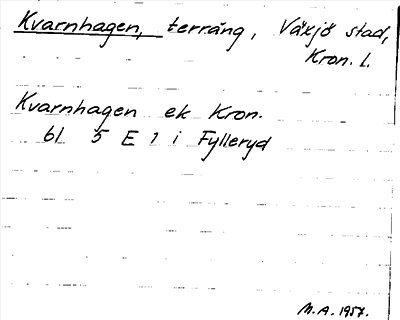 Kvarnhagen, terräng, Växjö stad,
Kron. l.
Kvarnhagen ek Kron.
bl 5 E 1 i Fylleryd
M.A. 1957.